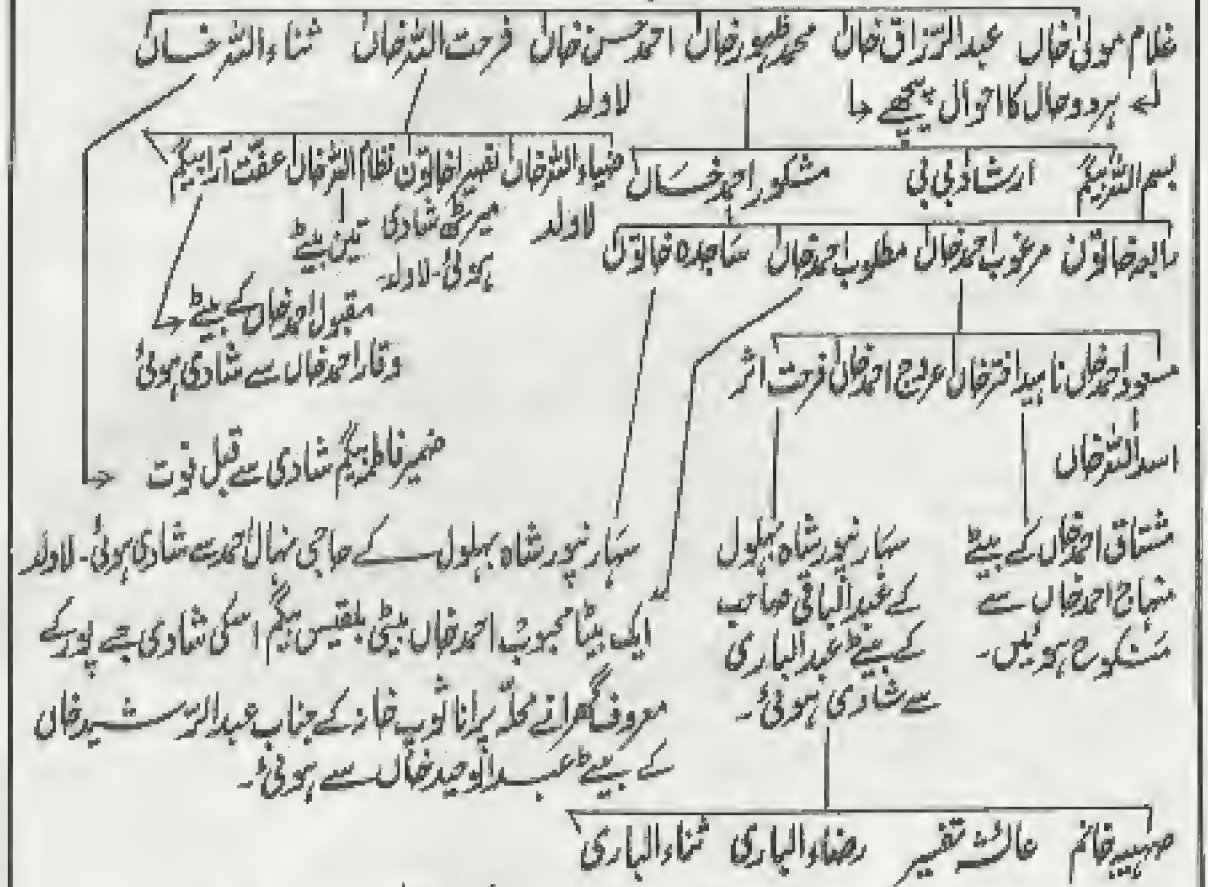 غلام مولیٰ خاں عبدالرزاق خاں محمد ظہور خاں احمد حسن خاں فرحت اللہ خاں ثناء اللہ خاں
ہر دو حال کا احوال پیچھے
لاولد
بسم اللہ بیگم ارشاد بی بی مشکور احمد خاں
ضیاء اللہ خاں نصیرا خاتون نظام اللہ خاں عفت آرا بیگم
لاولد
میرٹھ شادی ہوئی۔ لاولد۔
تین بیٹے
مقبول احمد خاں کے بیٹے
وقار احمد خاں سے شادی ہوئی
رابعہ خاتون مرغوب احمد خاں مطلوب احمد خاں ساجدہ خاتون
مسعود احمد خاں ناہید اختر خاں عروج احمد خاں فرحت اثر
اسد اللہ خاں
ضمیر فاطمہ بیگم شادی سے قبل فوت
مشتاق احمد خاں کے بیٹے
منہاج احمد خاں سے
منکوح ہوئیں۔
سہارنپور شاہ بہلول
کے عبدالباقی صاحب
کے بیٹے عبدالباری
سے شادی ہوئی۔
سہارنپور شاہ بہلول کے حاجی نہال احمد سے شادی ہوئی۔ لاولد
ایک بیٹا محبوب احمد خاں بیٹی بلقیس بیگم اسکی شادی جے پور کے
معروف گھرانے محلہ پرانا توپ خانہ کے جناب عبدالرشید خاں
کے بیٹے عبدالوحید خاں سے ہوئی۔
صہیبہ خانم عائشہ رضاء الباری ثناء الباری